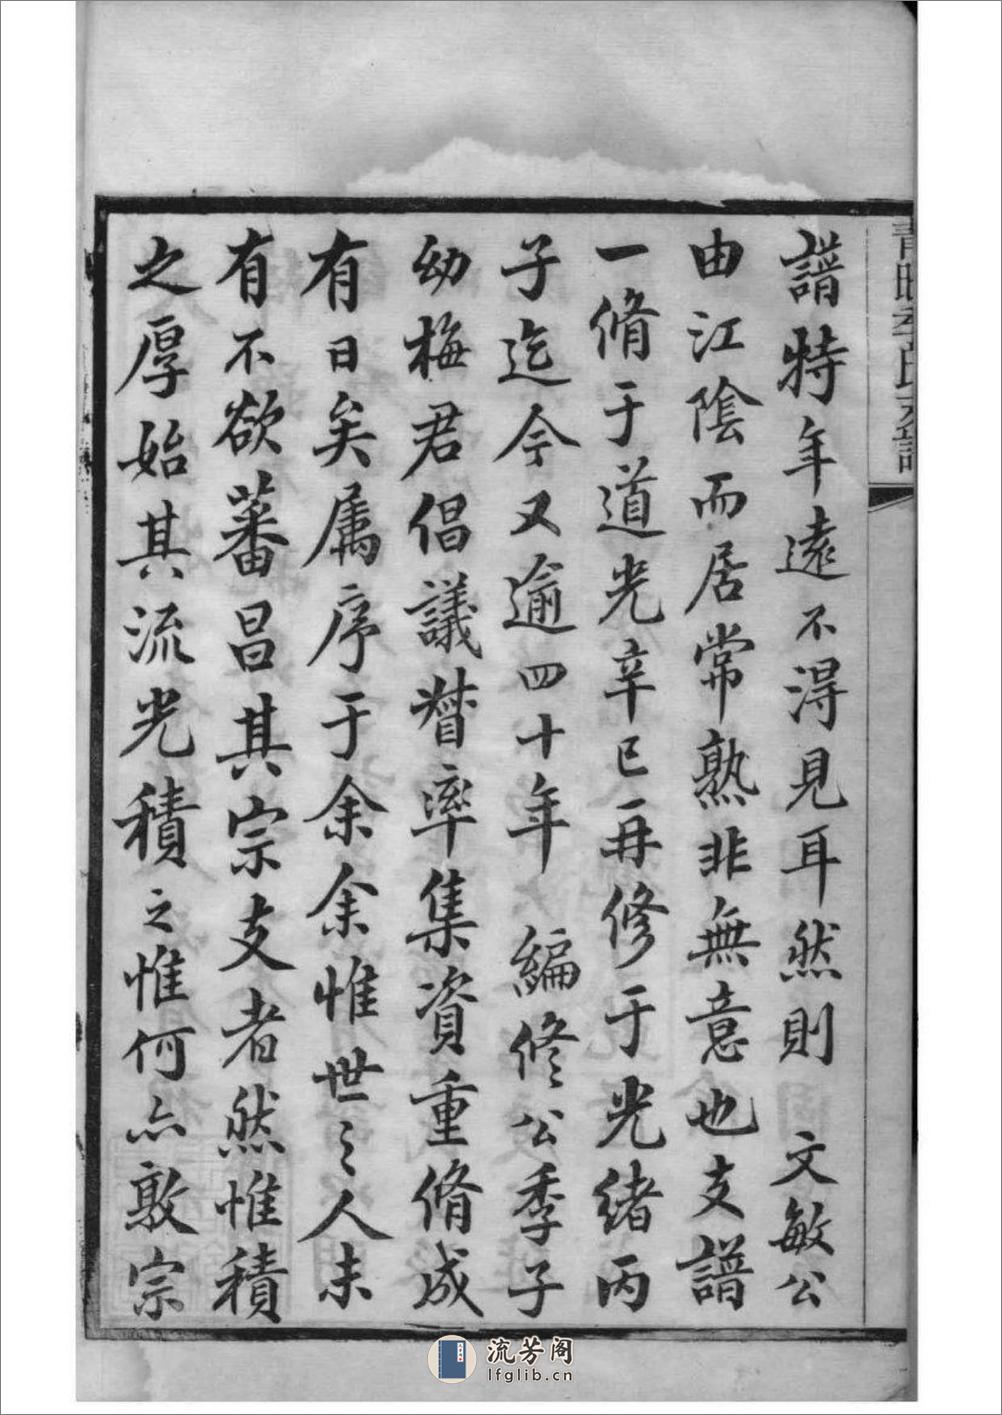 譜特年遠不淂見耳然則　文敏公
由江陰而居常熟非無意也支譜
一脩于道光辛巳再修于光緒丙
子迄今又逾四十年　編修公季子
幼梅君倡議督率集資重脩成
有日矣属序于余余惟世〻人未
有不欲蕃昌其宗支者然惟積
之厚始其流光積之惟何亦敦宗
流芳阁
lfglib.cn